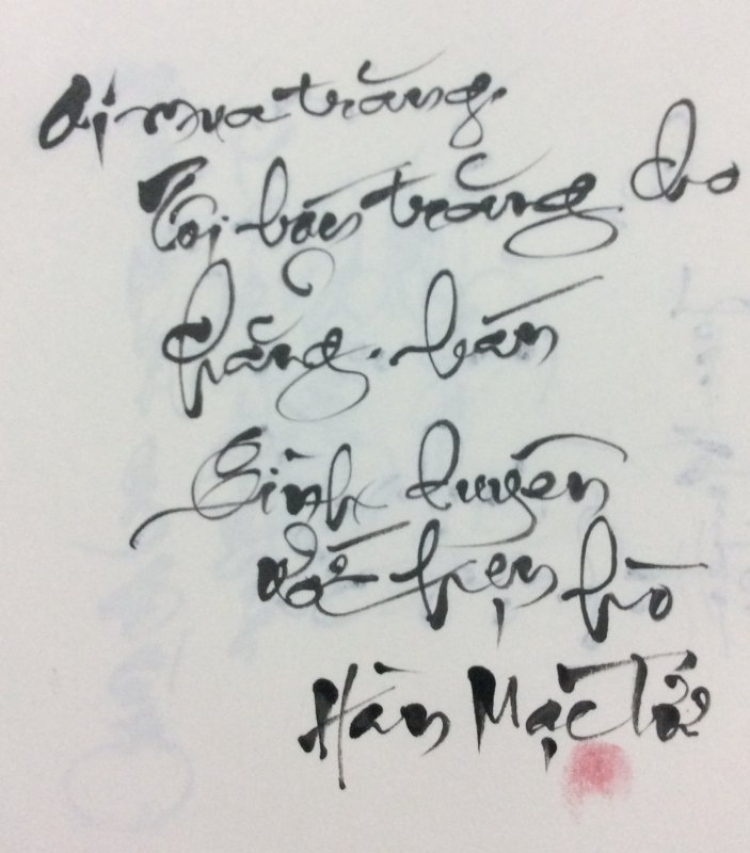 Ai mua trăng
Tôi bán trăng cho
Chẳng bán
Tình duyên
ước hẹn hò
Hàn Mạc Tử